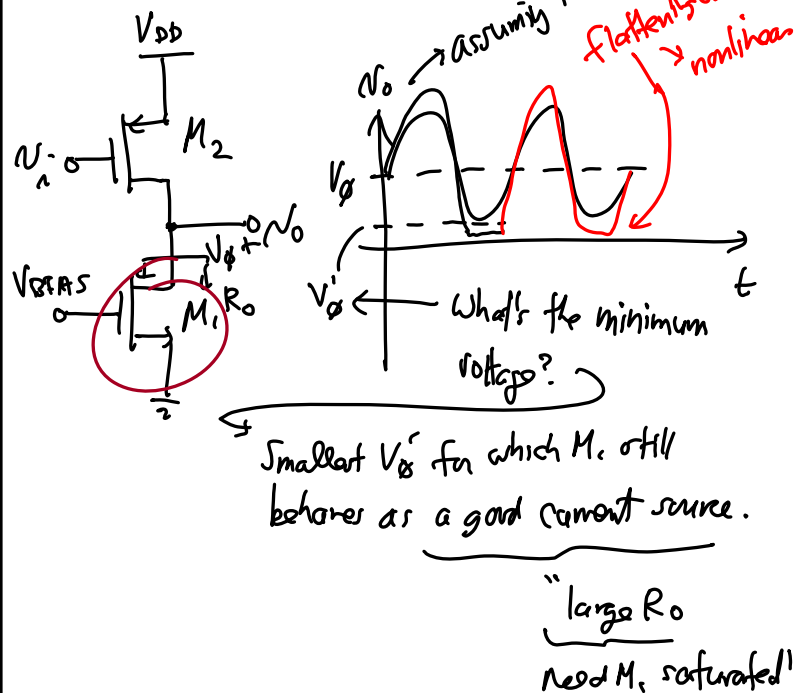 VDD
M2
Ni
No
VØ+
VBIAS
M1
Ro
assuming
flattening
nonlinear
No
VØ
VØ'
t
What's the minimum
voltage?
Smallest VØ' for which M1 still
behaves as a good current source.
"large Ro
need M1 saturated"